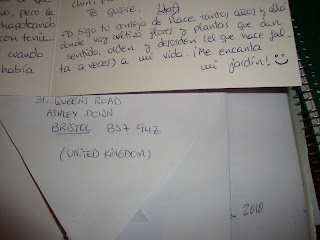 chini, p
a que
Te quiere.
no, pero la
chapoteando
PD Sigo tu consejo de hace tantos años y allá
con tenis...
donde voy cultivo flores y plantas que dan
sentido, orden y desorden (el que hace fal-
cuando
ta a veces) a mi vida. ¡Me encanta
había
mi jardín!
31, QUEENS ROAD
ASHLEY DOWN
BRISTOL BS7 9HZ
(UNITED KINGDOM)
2010